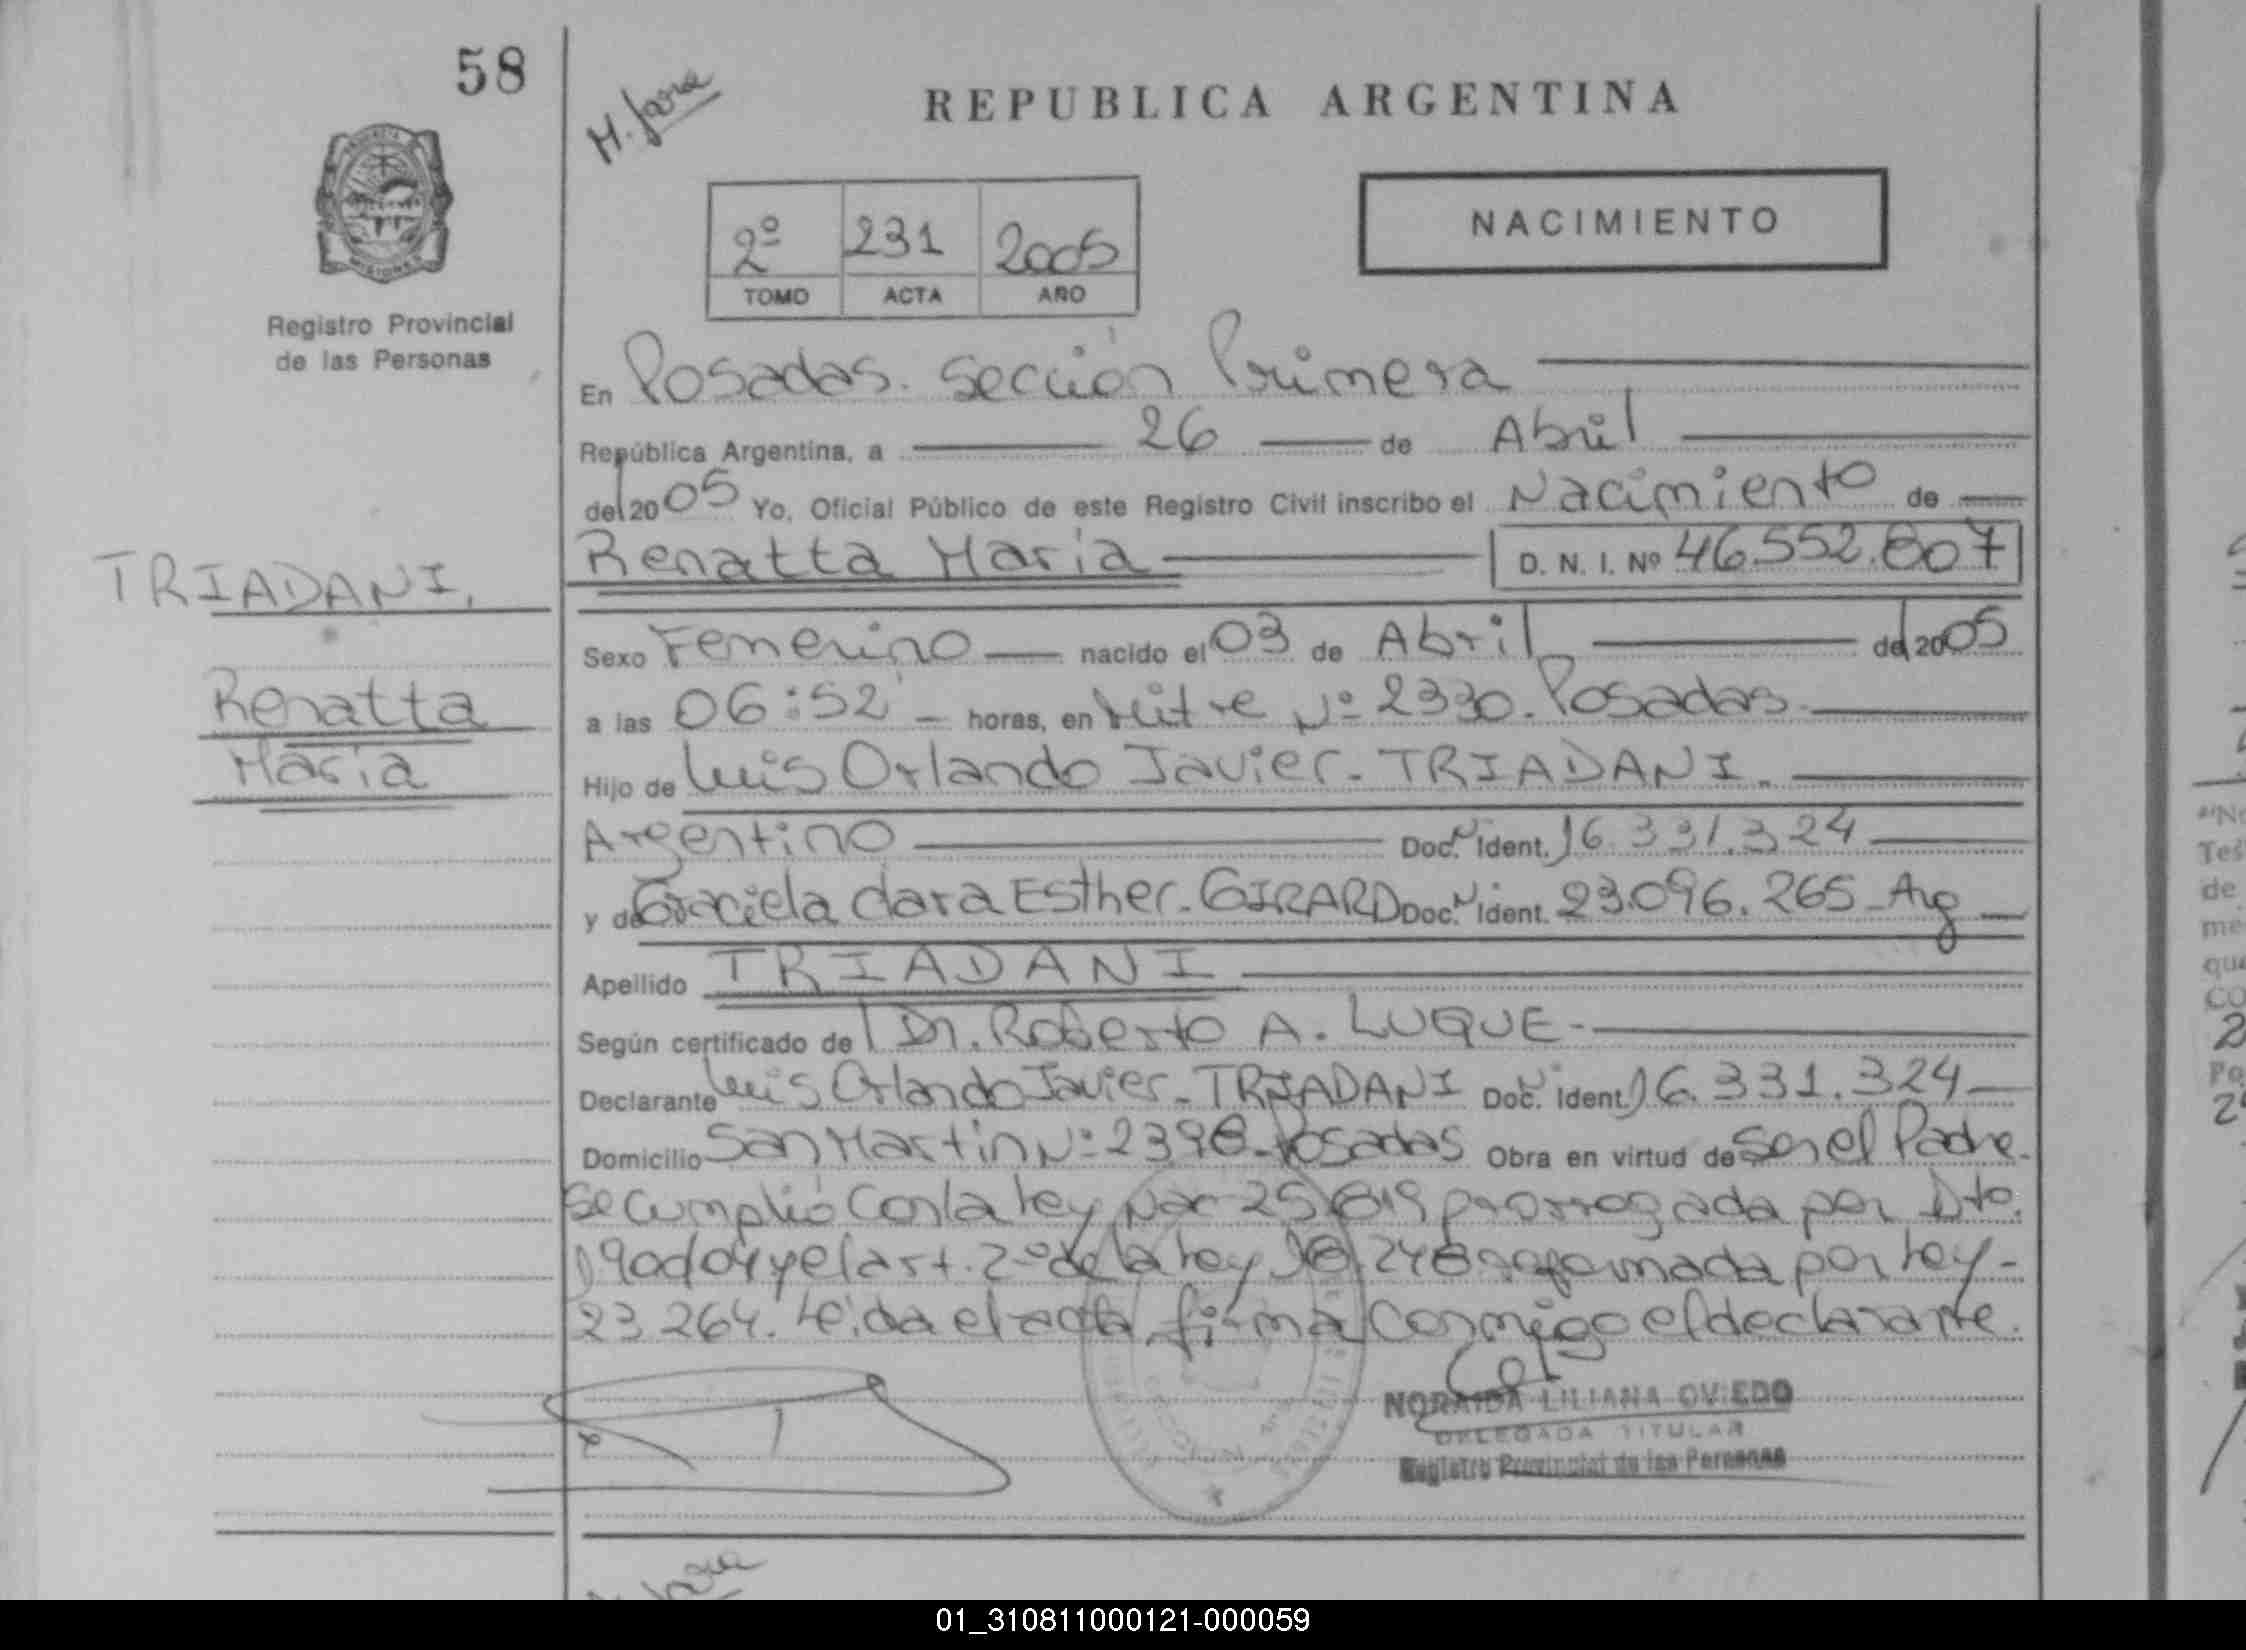 58
H. Jara
REPUBLICA ARGENTINA
2º 231 2005
TOMO ACTA AÑO
NACIMIENTO
MISIONES
Registro Provincial
de las Personas
En Posadas. Sección Primera
República Argentina, a 26 de Abril
del 2005 Yo, Oficial Público de este Registro Civil inscribo el Nacimiento de
Renatta Maria D. N. I. Nº 46.552.807
TRIADANI,
Renatta
Maria
Sexo Femenino nacido el 03 de Abril del 2005
a las 06:52' horas, en Mitre Nº 2330. Posadas.
Hijo de Luis Orlando Javier - TRIADANI.
Argentino Doc. N Ident. 16.331.324
y de Graciela Clara Esther - GIRARD Doc. N Ident. 23.096.265 - Arg
Apellido TRIADANI
Según certificado de Dr. Roberto A. LUQUE -
Declarante Luis Orlando Javier - TRIADANI Doc. N Ident. 16.331.324
Domicilio San Martin Nº 2398 - Posadas Obra en virtud de Ser el Padre.
Se cumplió con la ley Nac 25819 prorrogada por Dto.
190d04 y el art. 2º de la ley 18.248 reformada por ley -
23.264. Leida el acta firma conmigo el declarante.
NORAIDA LILIANA OVIEDO
DELEGADA TITULAR
Registro Provincial de las Personas
01_310811000121-000059